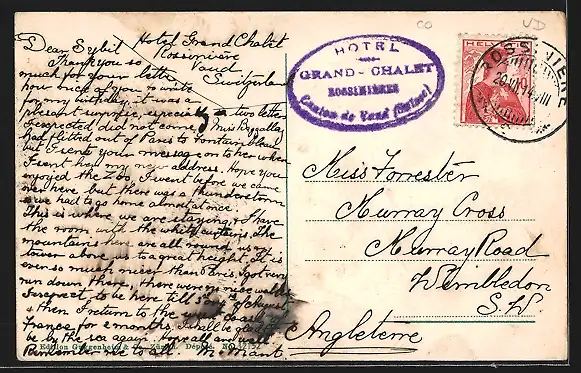 Hotel Grand Chalet
Rossinière
Vaud
Switzerland
Dear Sybil
Thank you so
much for your letter
how nice of you to write
for my birthday it was a
pleasant surprise, especially as two letters
I expected did not come. Miss
had flitted out of Paris to Fontainebleau
but I sent your message on to her when
I sent had my new address. Hope you
enjoyed the Zoo. I went before we came
here but there was a thunderstorm
& we had to go home almost at once.
This is where we are staying, & I have
the room with the white curtains. The
mountains here are all round us &
tower above to a great height. It is
ever so much nicer than Paris. I got very
run down there, there were no nice walks
I expect to be here till of August
& then I return to the
France for 2 months. I shall be glad to
be by the sea again. Hope all are well
Remember me to all. M. Mant
Edition Guggenheim & Co., Zürich. Déposé. No. 12152
HOTEL
GRAND-CHALET
ROSSINIÈRES
(Canton de Vaud (Suisse)
HELVETIA
ROSSINIERE
Miss Forrester
Murray Cross
Murray Road
Wimbledon
S.W
Angleterre